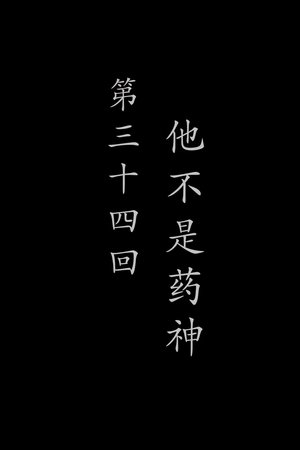 第三十四回
他不是药神